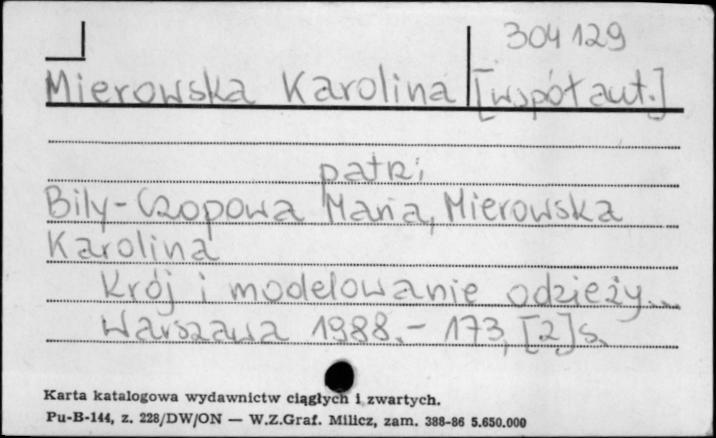 304 129
Mierowska Karolina [współaut.]
patrz:
Bily-Czopowa Maria, Mierowska
Karolina
Krój i modelowanie odzieży...
Warszawa 1988.- 173, [2]s.
Karta katalogowa wydawnictw ciągłych i zwartych.
Pu-B-144, z. 228/DW/ON — W.Z.Graf. Milicz, zam. 388-86 5.650.000